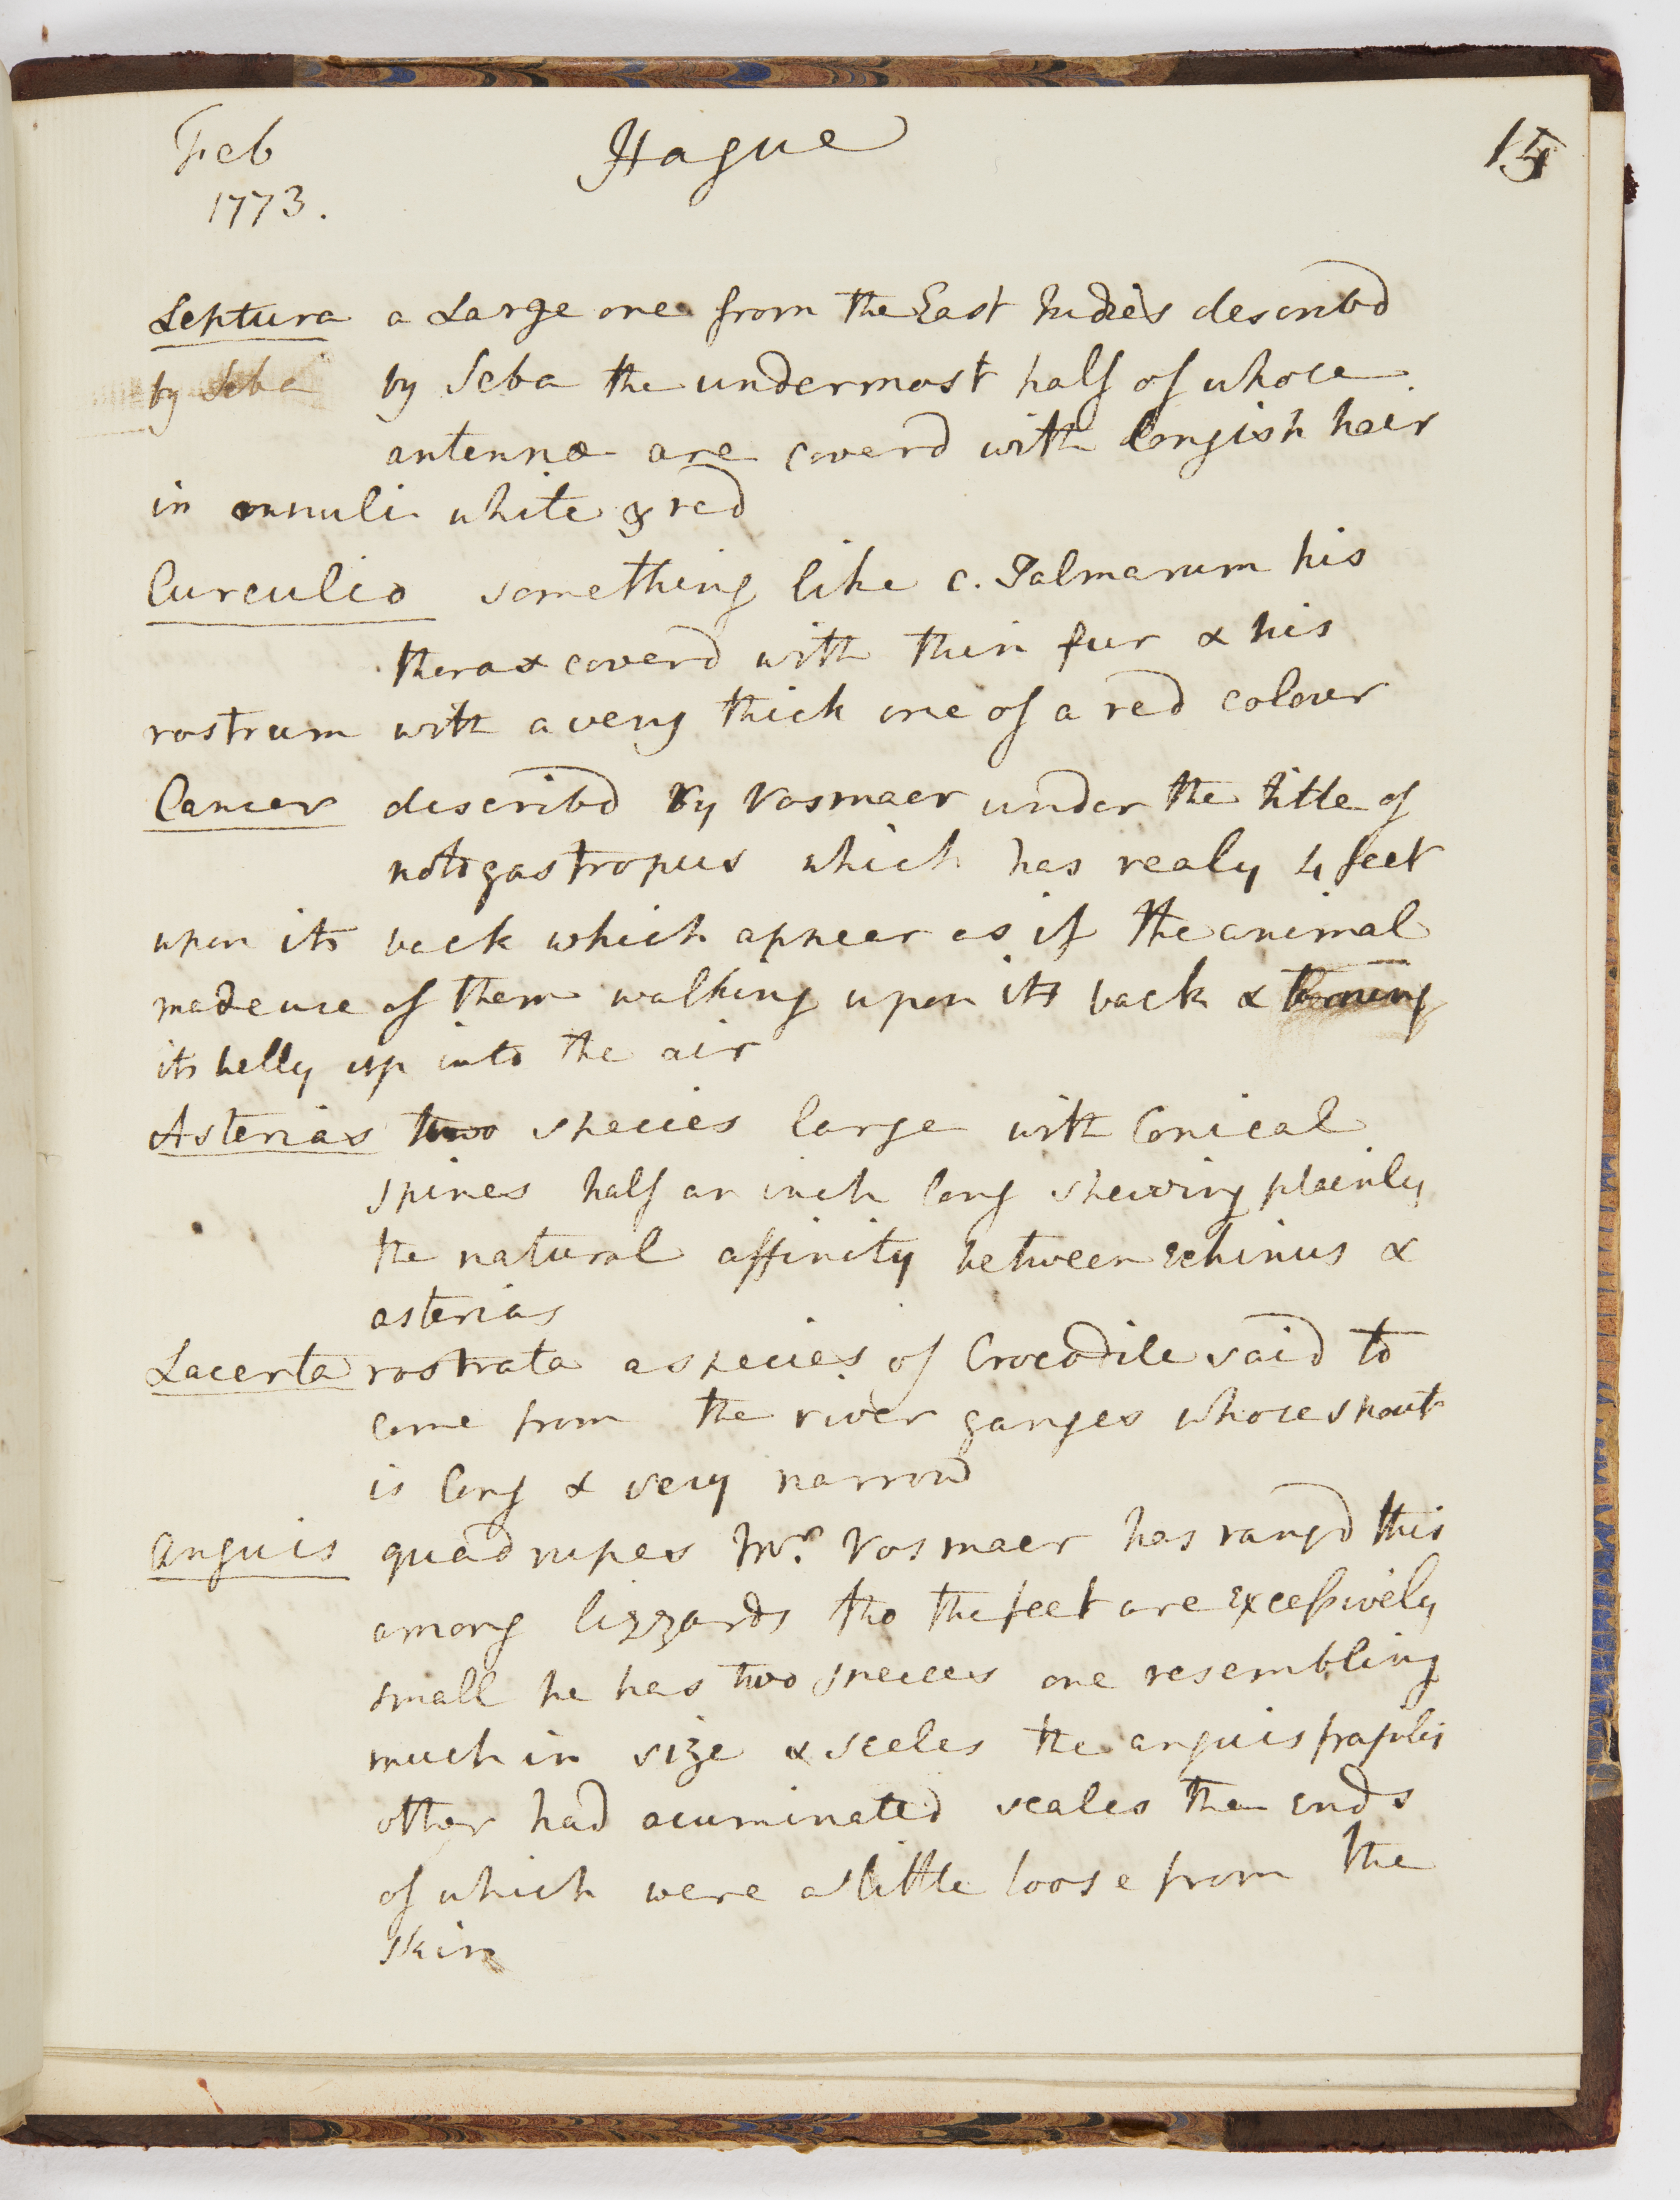 Feb Hague 15
1773.
Leptura a Large one from the East Indies describd
by Seba by Seba the undermost half of whose
antennæ are coverd with longish hair
in annuli white & red
Curculio something like c. Palmarum his
thorax coverd with thin fur & his
rostrum with a very thick one of a red colour
Cancer describd by Vosmaer under the title of
notogastropus which has realy 4 feet
upon its back which appear as if the animal
made use of them walking upon its back & turning
its belly up into the air
Asterias two species large with Conical
spines half an inch long shewing plainly
the natural affinity between echinus &
asterias
Lacerta rostrata a species of Crocodile said to
come from the river ganges whose snout
is long & very narrow
Anguis quadrupes Mr. Vosmaer has rangd this
among lizzards tho the feet are excessively
small he has two species one resembling
much in size & scales the anguis fragilis
other had acuminated scales the ends
of which were a little loose from the
skin